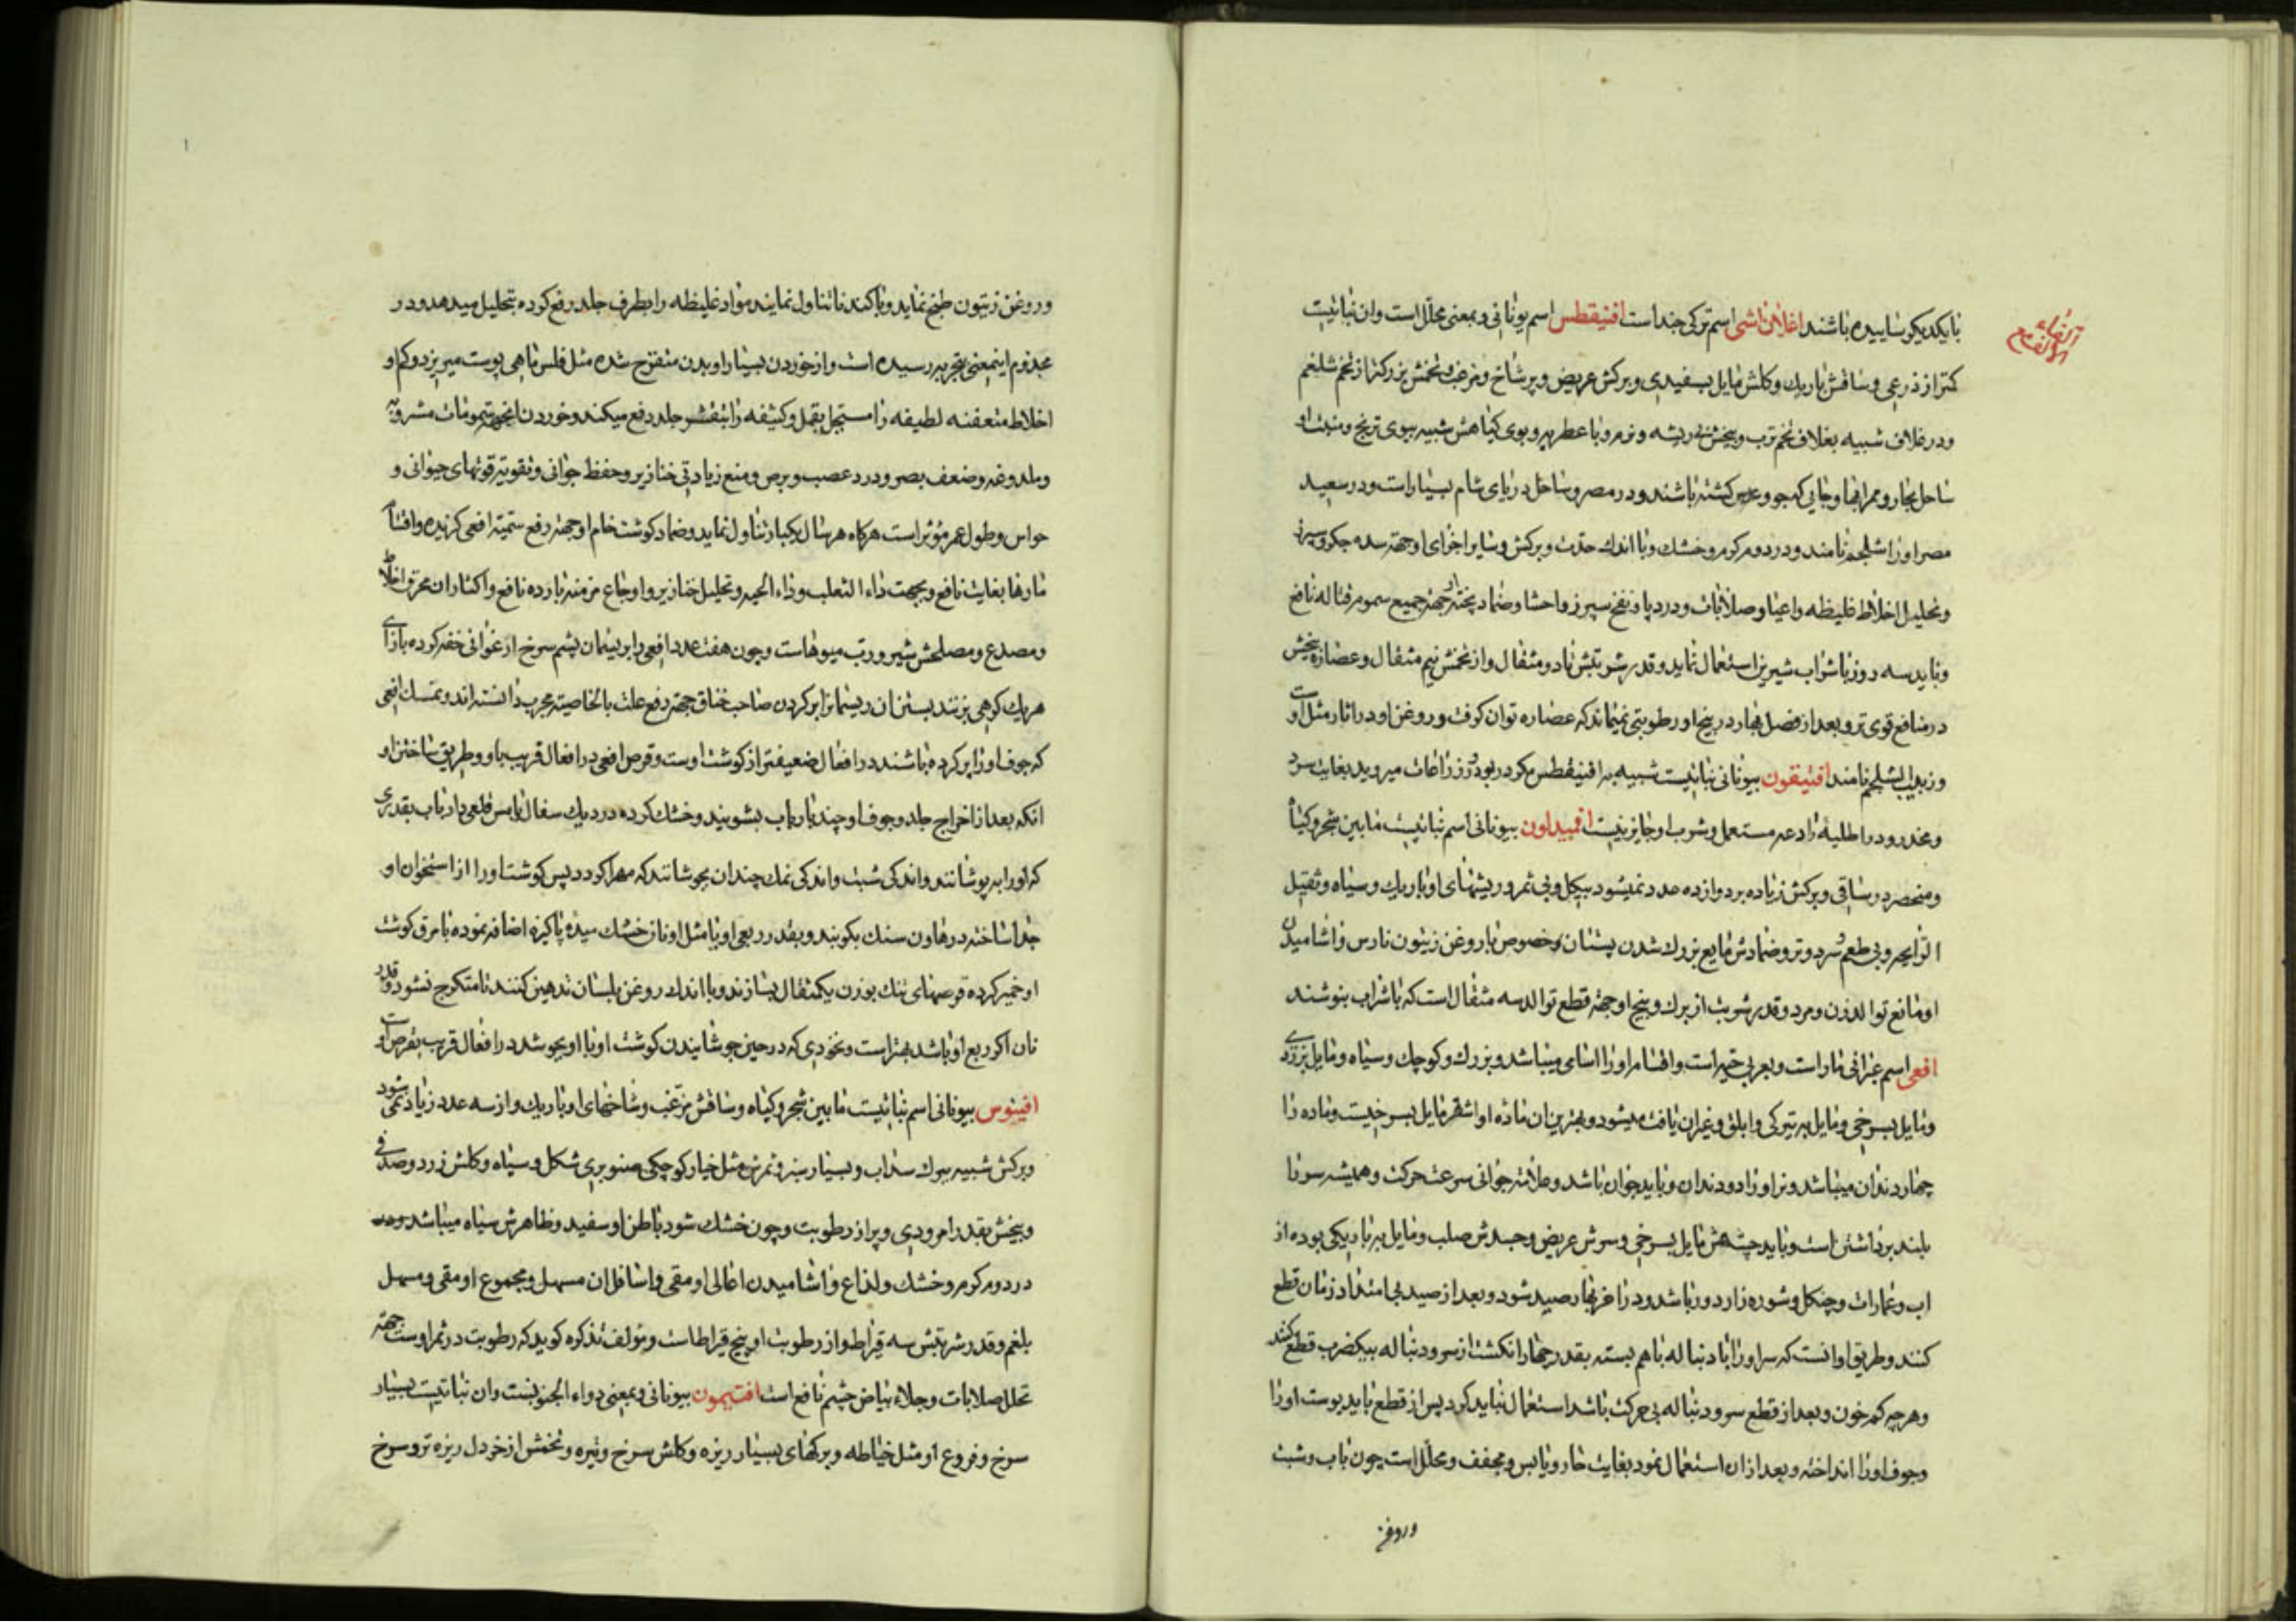 الفاء مع الالف
با یکدیکر سائیده باشند اغلان اشی اسم ترکی جنداست افنیقطس اسم یونانی و بمعنی محلل است وان نباتیست
کمتر از ذرعی و ساقش باریك و کلش مایل بسفیدی و برکش عریض و پر شاخ و تخمش بزرکتر از تخم شلغم
و در غلاف شبیه بغلاف تخم ترب و بیخش ریشه و نرم و با عطریه و بوی کیاهش شبیه ببوی ترنج و منبت او
ساحل بحار و ممر ابها و جایی که جو و عدس کشته باشند و در مصر و ساحل دریای شام بسیار است و در سعید
مصر او را شلجم نامند و در دوم کرم و خشك و با اندك حدت و برکش و سایر اجزای او جهته سده جکر و سپرز
و تحلیل اخلاط غلیظه و اعیا و صلابات و درد پا و نفخ سپرز و احشا و ضماد پخته او جهته جمیع سموم قتاله نافع
و باید سه روز با شراب شیرین استعمال نماید و قدر شربتش تا دو مثقال و از تخمش نیم مثقال و عصاره بیخش
در منافع قوی تر و بعد از فصل بهار در بیخ او رطوبتی نمیماند که عصاره توان کرفت و روغن او در اثار مثل اوست
و زیت الشلجم نامند افتیقون بیونانی نباتیست شبیه به افنیقطس مکرر در بو و در زراعات میروید بغایت سرد
و مخدر و در اطلیه رادعه مستعمل و شرب او جایز نیست اقمیداون بیونانی اسم نباتیست مابین شجر و کیاه
و منحصر در ساقی و برکش زیاده بر دوازده عدد نمیشود بیکل و بی ثمر و ریشهای او باریك و سیاه و ثقیل
الرایحه و بی طعم و سرد و تر و ضمادش مانع بزرك شدن پستان بخصوص با روغن زیتون نارس و اشامیدن
او مانع توالد زن و مرد و قدر شربت از برك و بیخ او جهته قطع توالد سه مثقال است که با شراب بنوشند
افعی اسم عبرانی مار است و بعربی حیه است و اقسام او را اسامی میباشد و بزرك و کوچك و سیاه و مایل بزردی
و مایل بسرخی و مایل به تیرکی و ابلق و غیر ان یافت میشود و بهترین ان ماده او اشقر مایل بسرخیست و ماده را
چهار دندان میباشد و نر او را دو دندان و باید جوان باشد و علامت جوانی سرعت حرکت و همیشه سر را
بلند برداشتن است و باید چشمش مایل بسرخی و سرش عریض و جسدش صلب و مایل به باریکی بوده از
اب و عمارات و جنکل و شوره زار دور باشد و در اخر بهار صید شود و بعد از صید بی امتداد زمان قطع
کنند و طریق او انست که سر او را با دنباله باهم بسته بقدر چهار انکشت از سر و دنباله بیکضرب قطع کنند
و هرچه کم خون و بعد از قطع سر و دنباله بی حرکت باشد استعمال نباید کرد پس از قطع باید پوست او را
و جوف او را انداخته و بعد از ان استعمال نمود بغایت حار و یابس و مجفف و محلل است چون باب و شبت
و روغن
و روغن زیتون طبخ نماید و پاکند تا تناول نمایند مواد غلیظه را بطرف جلد رفع کرده بتحلیل میدهد و در
مجذوم اینمعنی بتجربه رسیده است و از خوردن بسیار او بدن متقرح شده مثل فلس ماهی پوست میریزد و کم او
اخلاط متعفنه لطیفه را مستحیل بقمل و کثیفه را بتقشر جلد دفع میکند و خوردن ان جهته سمومات مشروبه
و ملدوغه و ضعف بصر و درد عصب و برص و منع زیادتی خنازیر و حفظ جوانی و تقویته قوتهای حیوانی و
حواس و طول عمر مؤثر است هرکاه هر سال یکبار تناول نماید و ضماد کوشت خام او جهته رفع سمیته افعی کزیده و اقسام
مارها بغایت نافع و بجهت داء الثعلب و داء الحیه و تحلیل خنازیر و اوجاع مزمنه بارده نافع و اکثار ان محرق اخلاط
و مصدع و مصلحش شیر و رب میوهاست و چون هفت عدد افعی را بریسمان پشم سرخ ارغوانی خفه کرده بازای
هریك کرهی بزنند بستن ان ریسمان را بر کردن صاحب خناق جهته دفع علت بالخاصیته مجرب دانسته اند و نمسك افعی
که جوف او را پر کرده باشند در افعال ضعیفتر از کوشت اوست و قرص افعی در افعال قریب باو و طریق ساختن او
انکه بعد از اخراج جلد و جوف او چند بار باب بشویند و خشك کرده در دیك سفال یا مس قلعی دار باب بقدری
که او را بپوشانند و اندکی شبت و اندکی نمك چندان بجوشانند که مهرا کردد پس کوشت او را از استخوان او
جدا ساخته در هاون سنك بکوبند و بقدر ربعی او یا مثل او نان خشك میده پاکیزه اضافه نموده با مرق کوشت
او خمیر کرده قرصهای تنك بوزن یکمثقال بسازند و با اندك روغن بلسان تدهین کنند تا متکرج نشود و قدر
نان اکر ربع او باشد بهتر است و نخودی که در حین جوشانیدن کوشت او با او بجوشد در افعال قریب بقرص است
افینوس بیونانی اسم نباتیست مابین شجر و کیاه و ساقش مزغب و شاخهای او باریك و از سه عدد زیاد نمی شود
و برکش شبیه ببرك سداب و بسیار سبز و ثمرش مثل خیار کوچکی صنوبری شکل و سیاه و کلش زرد و صدفی
و بیخش بقدر امرودی و پر از رطوبت و چون خشك شود باطن او سفید و ظاهرش سیاه میباشد
در دوم کرم و خشك و لذاع و اشامیدن اعالی او مقی و اسافل ان مسهل و مجموع او مقی و مسهل
بلغم و قدر شربتش سه قیراط و از رطوبت او پنج قیراط است و مؤلف تذکره کوید که رطوبت در ثمر اوست جهته
تحلل صلابات و جلاء بیاض چشم نافع است افتیمون بیونانی و بمعنی دواء الجنونست وان نباتیست بسیار
سرخ و فروع او مثل خیاطه و برکهای بسیار ریزه و کلش سرخ و تیره و تخمش از خردل ریزه تر و سرخ